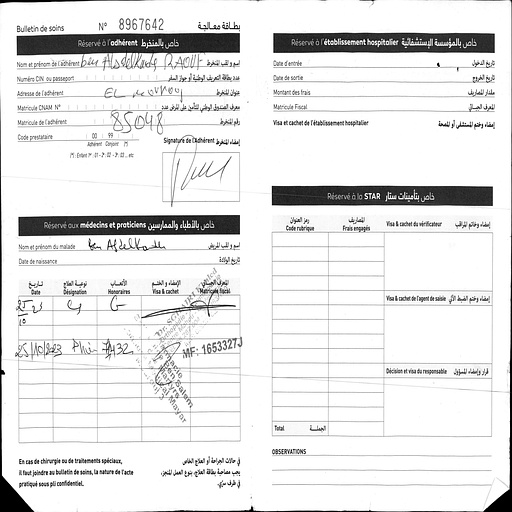 Bulletin de soins N° 8967642 بطاقة معالجة
Réservé à l'adhérent خاص بالمنخرط
Nom et prénom de l'adhérent ben Abdelkader RAOUF إسم و لقب المنخرط
Numéro CIN ou passeport عدد بطاقة التعريف الوطنية أو جواز السفر
Adresse de l'adhérent EL mourouj عنوان المنخرط
Matricule CNAM N° معرف الصندوق الوطني للتأمين على المرض عدد
Matricule de l'adhérent 85048 رقم المنخرط
Code prestataire 00 99
Adhérent Conjoint (*)
(*) : Enfant 1er : 01 - 2e : 02 - 3e : 03 ... etc
Signature de l'Adhérent إمضاء المنخرط
Réservé aux médecins et praticiens خاص بالأطباء والممارسين
Nom et prénom du malade Ben Abdelkader إسم و لقب المريض
Date de naissance تاريخ الولادة
تاريخ نوعية العلاج الأتعاب الإمضاء و الختم المعرف الجبائي
Date Désignation Honoraires Visa & cachet Matricule fiscal
25/10 23 G
25/10/2023 432
MF: 1653327J
Ben Salem
En cas de chirurgie ou de traitements spéciaux,
il faut joindre au bulletin de soins, la nature de l'acte
pratiqué sous pli confidentiel.
في حالات الجراحة أو العلاج الخاص
يجب مصاحبة بطاقة العلاج، بنوع العمل المنجز،
في ظرف سري.
Réservé à l'établissement hospitalier خاص بالمؤسسة الإستشفائية
Date d'entrée تاريخ الدخول
Date de sortie تاريخ الخروج
Montant des frais مقدار المصاريف
Matricule Fiscal المعرف الجبائي
Visa et cachet de l'établissement hospitalier إمضاء وختم المستشفى أو المصحة
Réservé à la STAR خاص بتأمينات ستار
رمز العنوان المصاريف
Code rubrique Frais engagés
Visa & cachet du vérificateur إمضاء وخاتم المراقب
Visa & cachet de l'agent de saisie إمضاء وختم الضبط الآلي
Décision et visa du responsable قرار وإمضاء المسؤول
Total الجملة
OBSERVATIONS